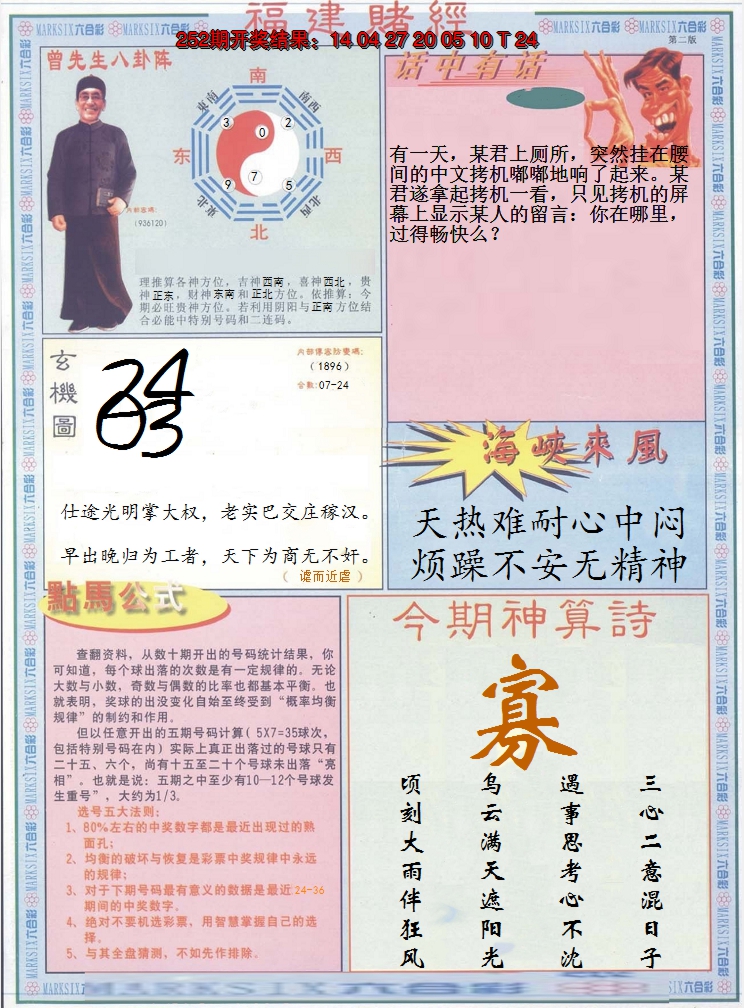 福建賭經
252期开奖结果：14 04 27 20 05 10 T 24
第二版
曾先生八卦阵
南
东南
南西
3
0
2
东
西
9
7
5
东北
北西
北
（936120）
理推算各神方位，吉神西南，喜神西北，贵
神正东，财神东南和正北方位。依推算：今
期必旺贵神方位。若利用阴阳与正南方位结
合必能中特别号码和二连码。
话中有话
有一天，某君上厕所，突然挂在腰
间的中文拷机嘟嘟地响了起来。某
君遂拿起拷机一看，只见拷机的屏
幕上显示某人的留言：你在哪里，
过得畅快么？
玄機圖
24
03
内部傳密防變碼：
（1896）
合數:07-24
仕途光明掌大权，老实巴交庄稼汉。
早出晚归为工者，天下为商无不奸。
（ 谑而近虐 ）
海峽來風
天热难耐心中闷
烦躁不安无精神
點馬公式
查翻资料，从数十期开出的号码统计结果，你
可知道，每个球出落的次数是有一定规律的。无论
大数与小数，奇数与偶数的比率也都基本平衡。也
就表明，奖球的出没变化自始至终受到“概率均衡
规律”的制约和作用。
但以任意开出的五期号码计算( 5X7=35球次，
包括特别号码在内) 实际上真正出落过的号球只有
二十五、六个，尚有十五至二十个号球未出落“亮
相”。也就是说：五期之中至少有10—12个号球发
生重号”，大约为1/3。
选号五大法则：
1、80%左右的中奖数字都是最近出现过的熟
面孔；
2、均衡的破坏与恢复是彩票中奖规律中永远
的规律；
3、对于下期号码最有意义的数据是最近24-36
期间的中奖数字。
4、绝对不要机选彩票，用智慧掌握自己的选
择。
5、与其全盘猜测，不如先作排除。
今期神算詩
寡
三心二意混日子
遇事思考心不沈
乌云满天遮阳光
顷刻大雨伴狂风
MARKSIX六合彩